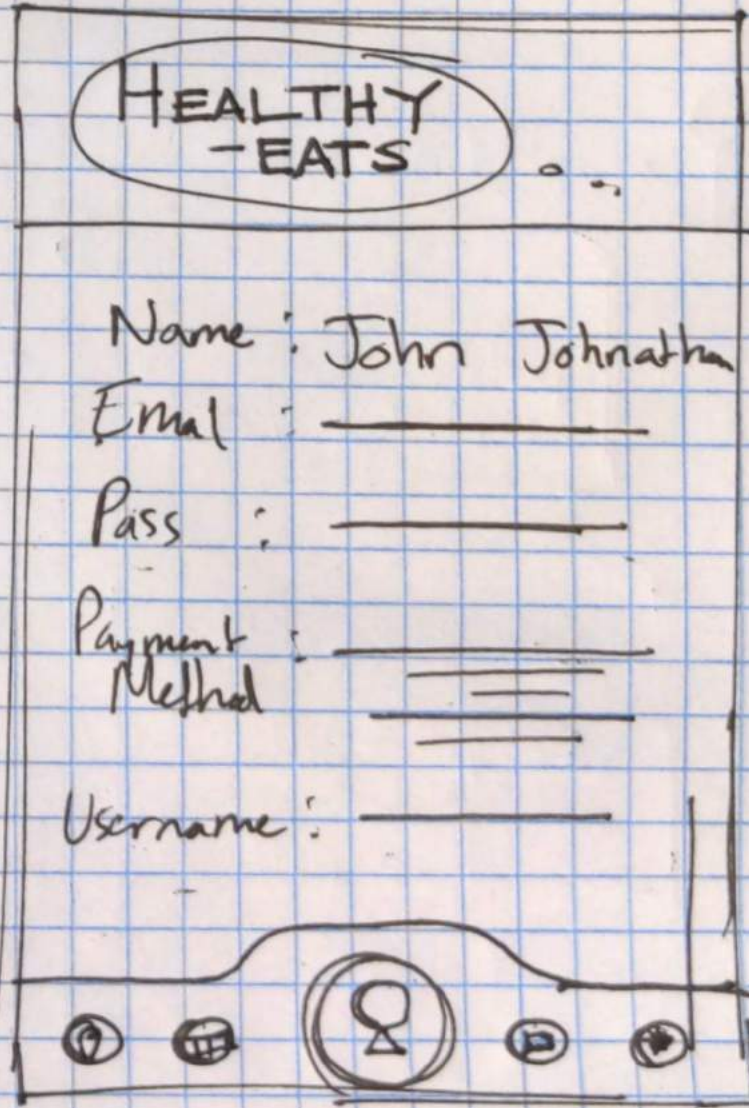 HEALTHY
-EATS
Name : John Johnathan
Emal :
Pass :
Payment :
Method
Username :